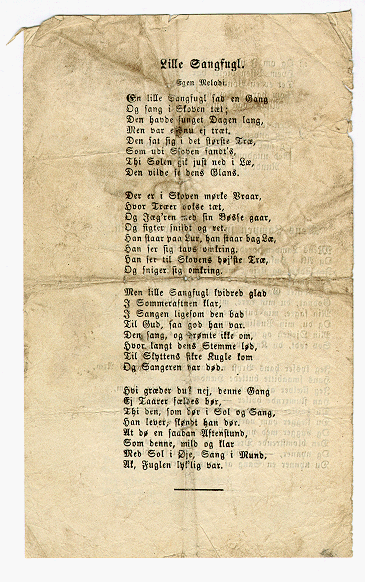 Lille Sangfugl.
Egen Melodi.
En lille Sangfugl sad en Gang
Og sang i Skoven tæt;
Den havde sunget Dagen lang,
Men var endnu ej træt.
Den sat sig i det største Træ,
Som udi Skoven fandt's,
Thi Solen gik just ned i Læ,
Den vilde se dens Glans.
Der er i Skoven mørke Vraar,
Hvor Træer vokse tæt,
Og Jæg'ren med sin Bøsse gaar,
Og sigter snildt og ret.
Han staar paa Lur, han staar bag Læ,
Han ser sig tavs omkring.
Han ser til Skovens høj'ste Træ,
Og sniger sig omkring.
Men lille Sangfugl kvidred glad
I Sommeraftnen klar,
I Sangen ligesom den bad
Til Gud, saa god han var.
Den sang, og drømte ikke om,
Hvor langt dens Stemme lød,
Til Skyttens sikre Kugle kom
Og Sangeren var død.
Hvi græder du? nej, denne Gang
Ej Taarer fældes bør,
Thi den, som dør i Sol og Sang,
Han lever, skøndt han dør.
At dø en saadan Aftenstund,
Som denne, mild og klar
Med Sol i Øje, Sang i Mund,
Ak, Fuglen lyk'lig var.